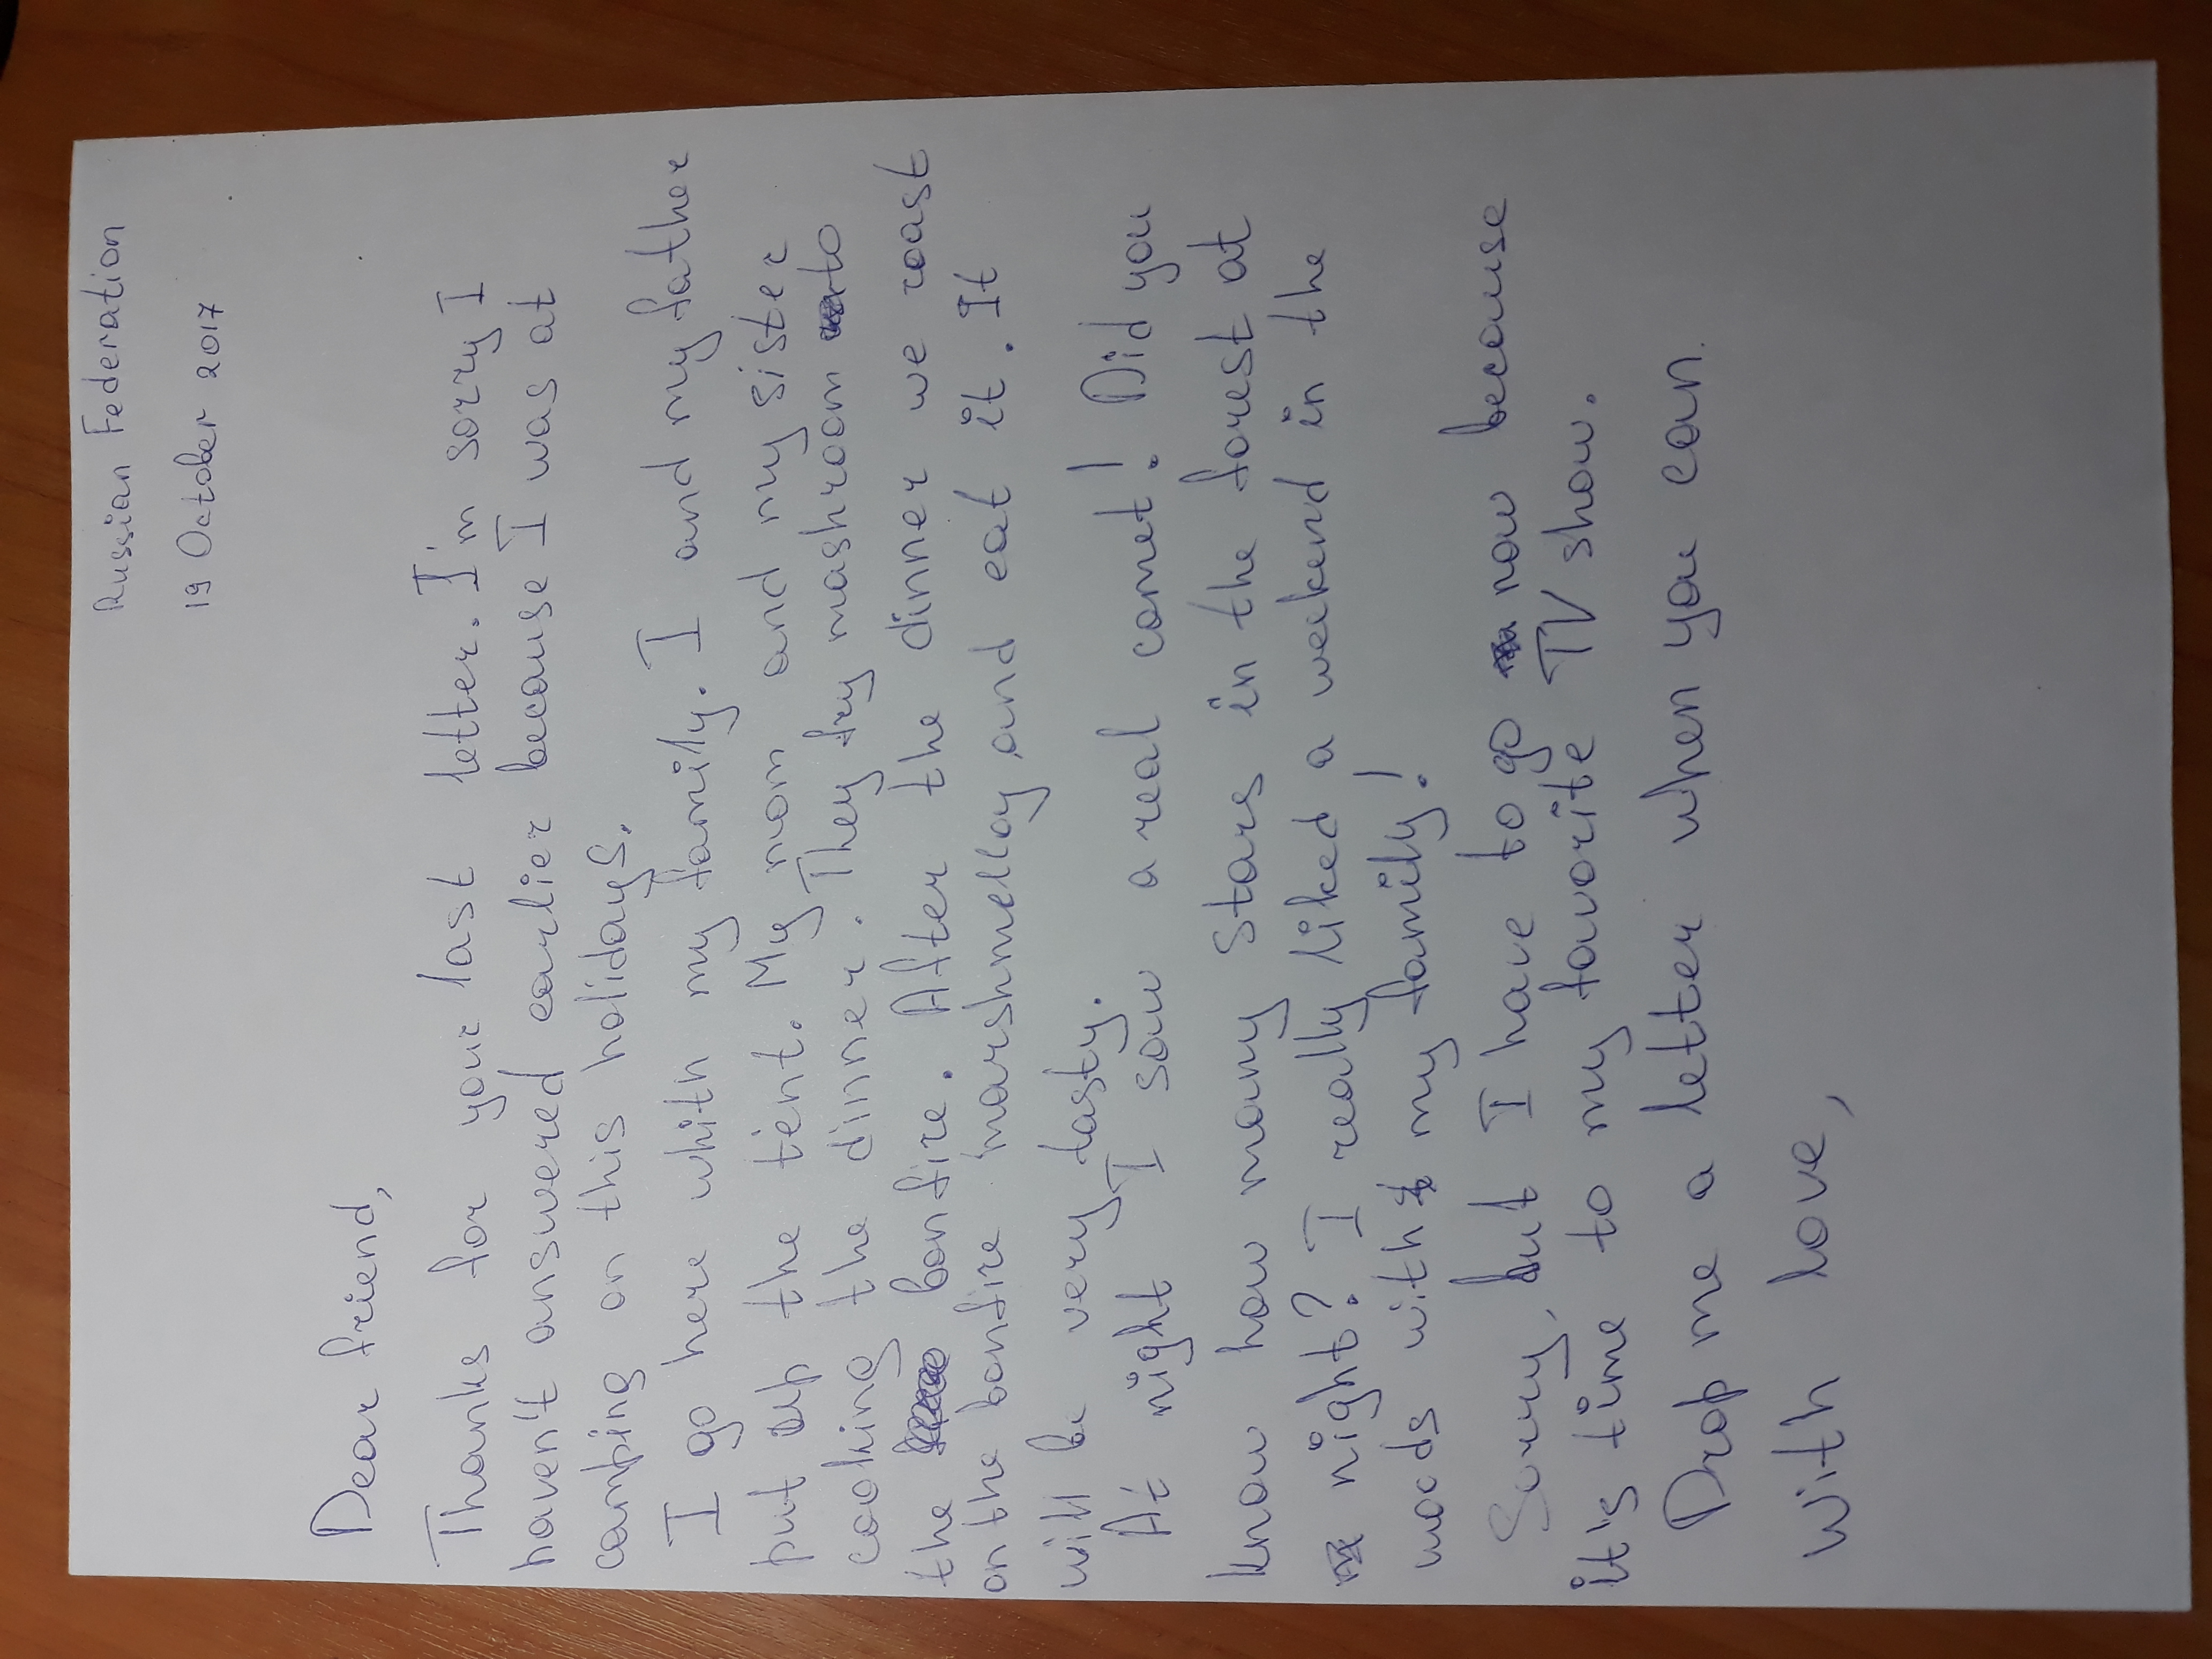 Russian Federation
19 October 2017
Dear friend,
Thanks for your last letter. I'm sorry I
haven't answered earlier because I was at
camping on this holidays.
I go here with my family. I and my father
put up the tent. My mom and my sister
cooking the dinner. They fry mashroom to
the bonfire. After the dinner we roast
on the bonfire marshmellay and eat it. It
will be very tasty.
At night I saw a real comet! Did you
know how many stars in the forest at
night? I really liked a weekend in the
woods with my family!
Sorry, but I have to go now because
it's time to my favorite TV show.
Drop me a letter when you can.
With love,